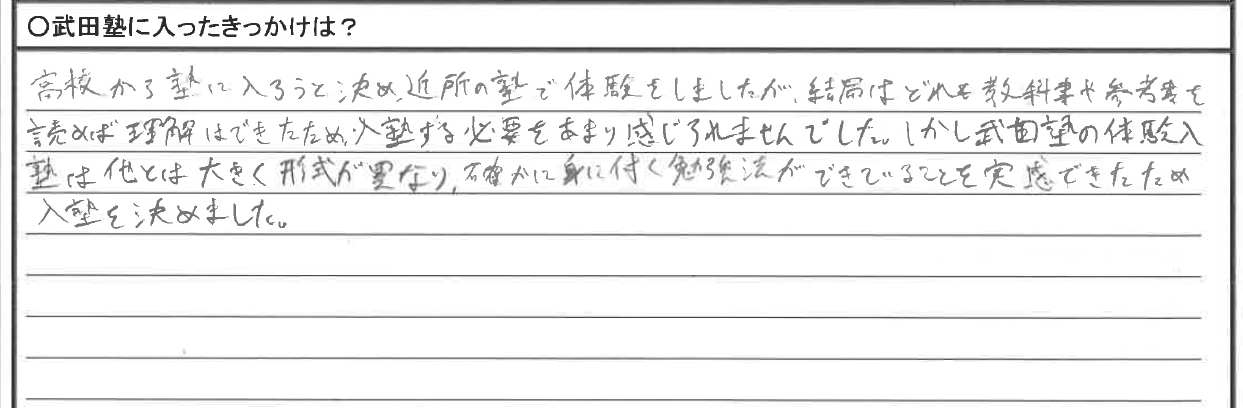 〇武田塾に入ったきっかけは？
高校から塾に入ろうと決め、近所の塾で体験をしましたが、結局はどれも教科書や参考書を
読めば理解はできたため、入塾する必要をあまり感じられませんでした。しかし武田塾の体験入
塾は他とは大きく形式が異なり、確かに身に付く勉強法ができていることを実感できたため
入塾を決めました。